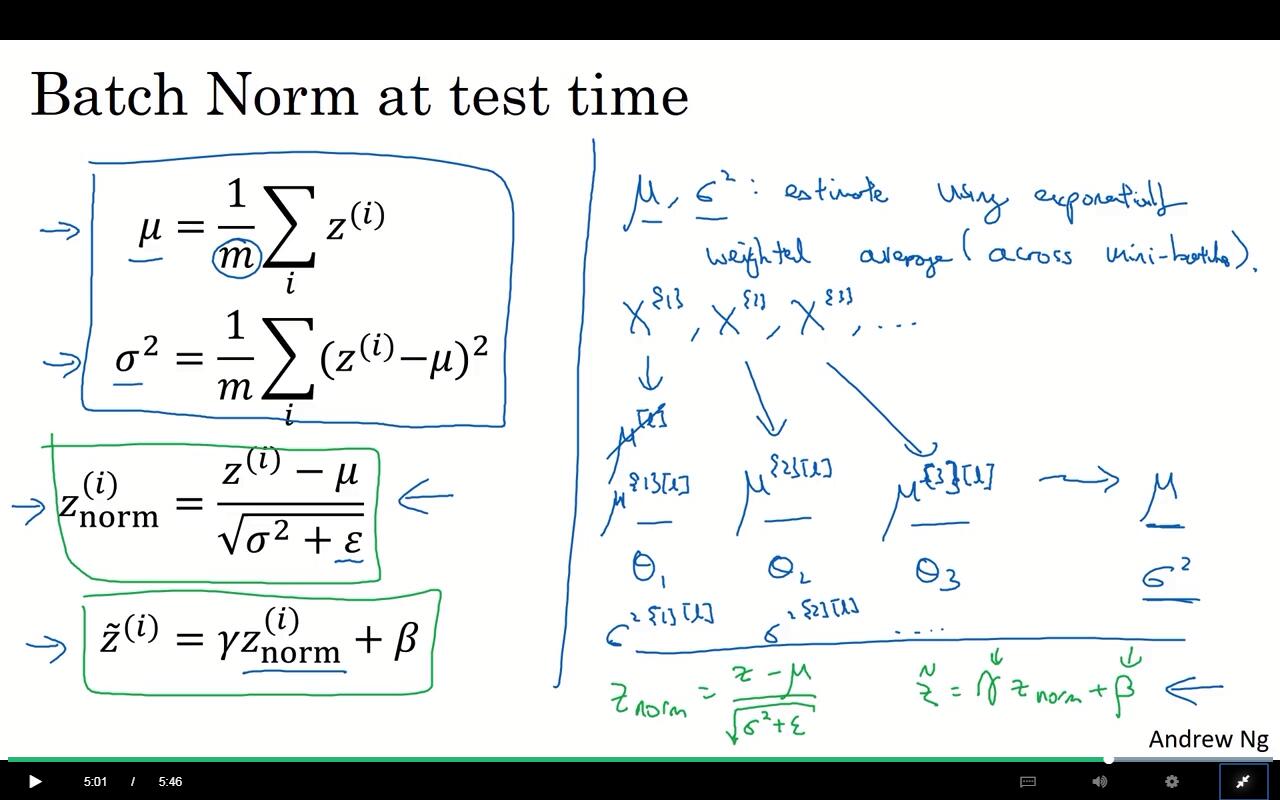 Batch Norm at test time
μ = 1/m ∑_i z^(i)
σ² = 1/m ∑_i (z^(i)−μ)²
z_norm^(i) = (z^(i) − μ)/√(σ² + ε)
z̃^(i) = γz_norm^(i) + β
μ, σ² : estimate using exponentially
weighted average (across mini-batches).
X^{1}, X^{2}, X^{3}, ...
μ^[l]
μ^{1}[l] μ^{2}[l] μ^{3}[l] → μ
θ₁ θ₂ θ₃ σ²
σ²^{1}[l] σ²^{2}[l] ....
z_norm = (z − μ)/√(σ²+ε) z̃ = γ z_norm + β
Andrew Ng
5:01 / 5:46